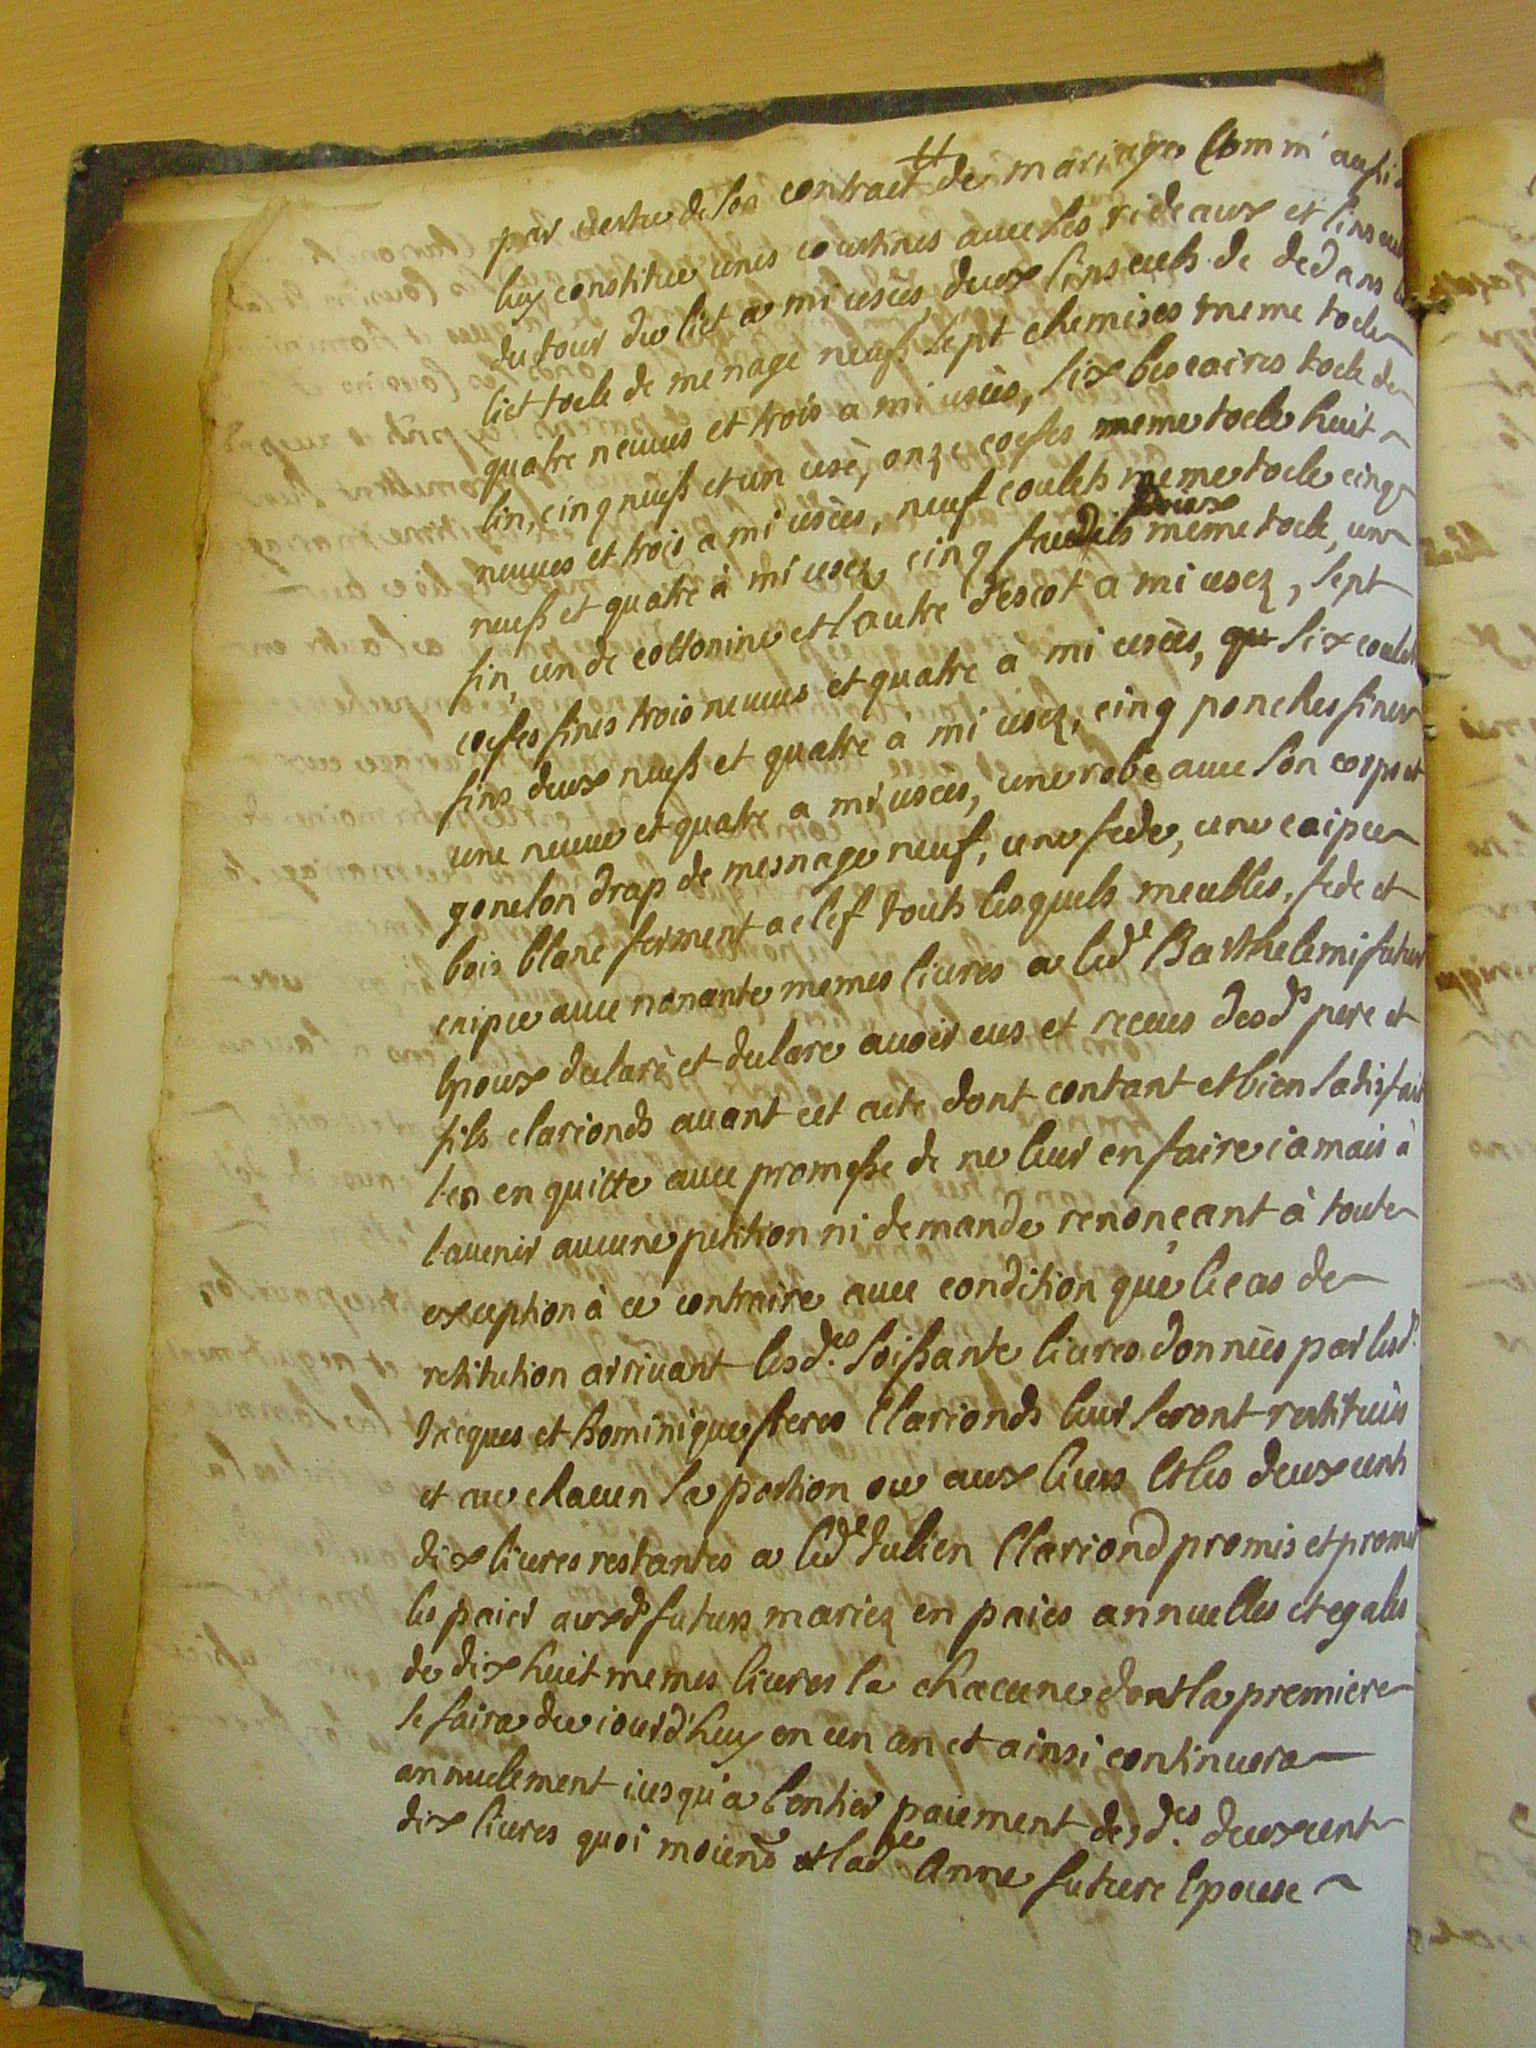 par vertu de les contract de mariage Comm' aussi
luy constitue unes courtines avec les rideaux et linseul
du tour du lict a mi usées, deux linseuls de dedans
lict toele de menage neufs sept chemises meme toele
quatre neuves et trois a mi usées, six bescaires toele de
lin, cinq neufs et un usé, onze coefes meme toele huit
neuves et trois a mi usées, neuf coulets meme toele cinq
neufs et quatre à mi usez cinq faudils deux meme toele, un
fin, un de cottonine et l'autre d'escot a mi usez, sept
coefes fines trois neuves et quatre à mi usées, six coulets
fins deux neufs et quatre à mi usez, cinq ponches fines
une neuve et quatre a mi usées, une robe avec son corps et
gonelon drap de mesnage neuf, une fede, une caipce
bois blanc ferment a clef touts lesquels meubles, fede et
caipce avec nonante memes livres a led.t Barthelemi futur
epoux declaré et declare avoir eus et receus desd.s pere et
fils clarionds avant cet acte dont contant et bien satisfait
les en quitte avec promesse de ne leur en faire iamais à
l'avenir aucune petition ni demande renonçant à toute
exception à ce contraire avec condition que le cas de
retitution arrivant lesd.es soissante livres données par lesd.
Jacques et Dominique freres Clarionds leur seront restituées
et au chacun sa portion ou aux leurs Et les deux cents
dix livres restantes a led.t Julien Clariond promis et promet
les paier auxd.s futurs mariez en paies annuelles et egales
de dix huit memes livres la chacune dont la premiere
se faira du iourd'huy en un an et ainsi continuera
annuelement iusqu'a l'entier paiement desd.es deux cent
dix livres quoi moiend et lad.te Anne future epouse